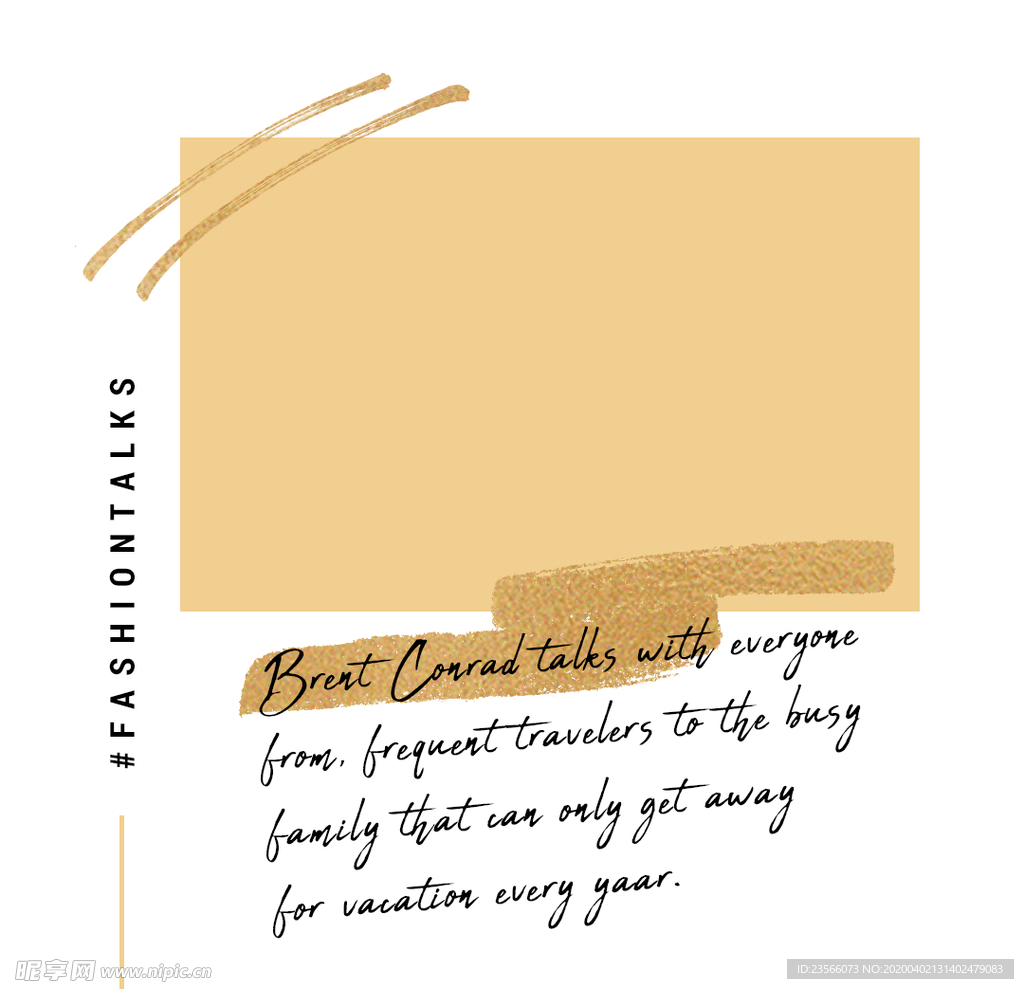 #FASHIONTALKS
Brent Conrad talks with everyone
from, frequent travelers to the busy
family that can only get away
for vacation every yaar.
昵享网 www.nipic.cn
ID:23566073 NO:20200402131402479083